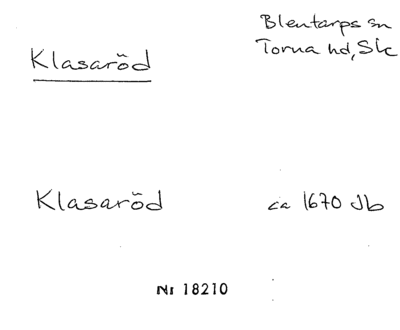 Blentarps sn
Torna hd, Sk
Klasaröd
Klasaröd
ca 1670 Jb
Nr 18210